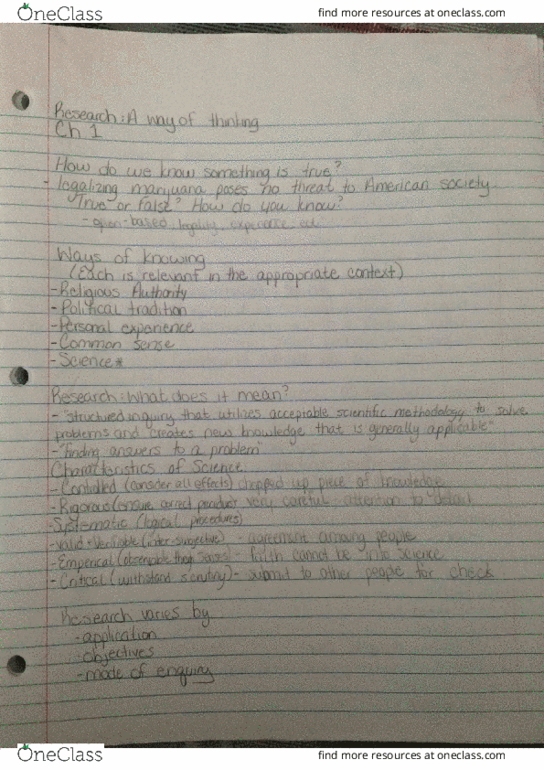 OneClass
find more resources at oneclass.com
Research: A way of thinking
Ch 1
How do we know something is true?
- legalizing marijuana poses no threat to American society.
True or false? How do you know?
- based, legality, experience, ed.
Ways of knowing
(Each is relevant in the appropriate context)
- Religious Authority
- Political tradition
- Personal experience
- Common sense
- Science*
Research: What does it mean?
- "structured inquiry that utilizes acceptable scientific methodology to solve
problems and creates new knowledge that is generally applicable"
- "finding answers to a problem"
Characteristics of Science
- Controlled (consider all effects) chopped up piece of knowledge
- Rigorous (ensure correct product very careful attention to detail
- Systematic (logical procedures)
- valid + Verifiable (inter-subjective) - agreement among people
- Emperical (observable senses) - faith cannot be into science
- Critical (withstand scrutiny) - submit to other people for check
Research varies by
- application
- objectives
- mode of enquiry
OneClass
find more resources at oneclass.com